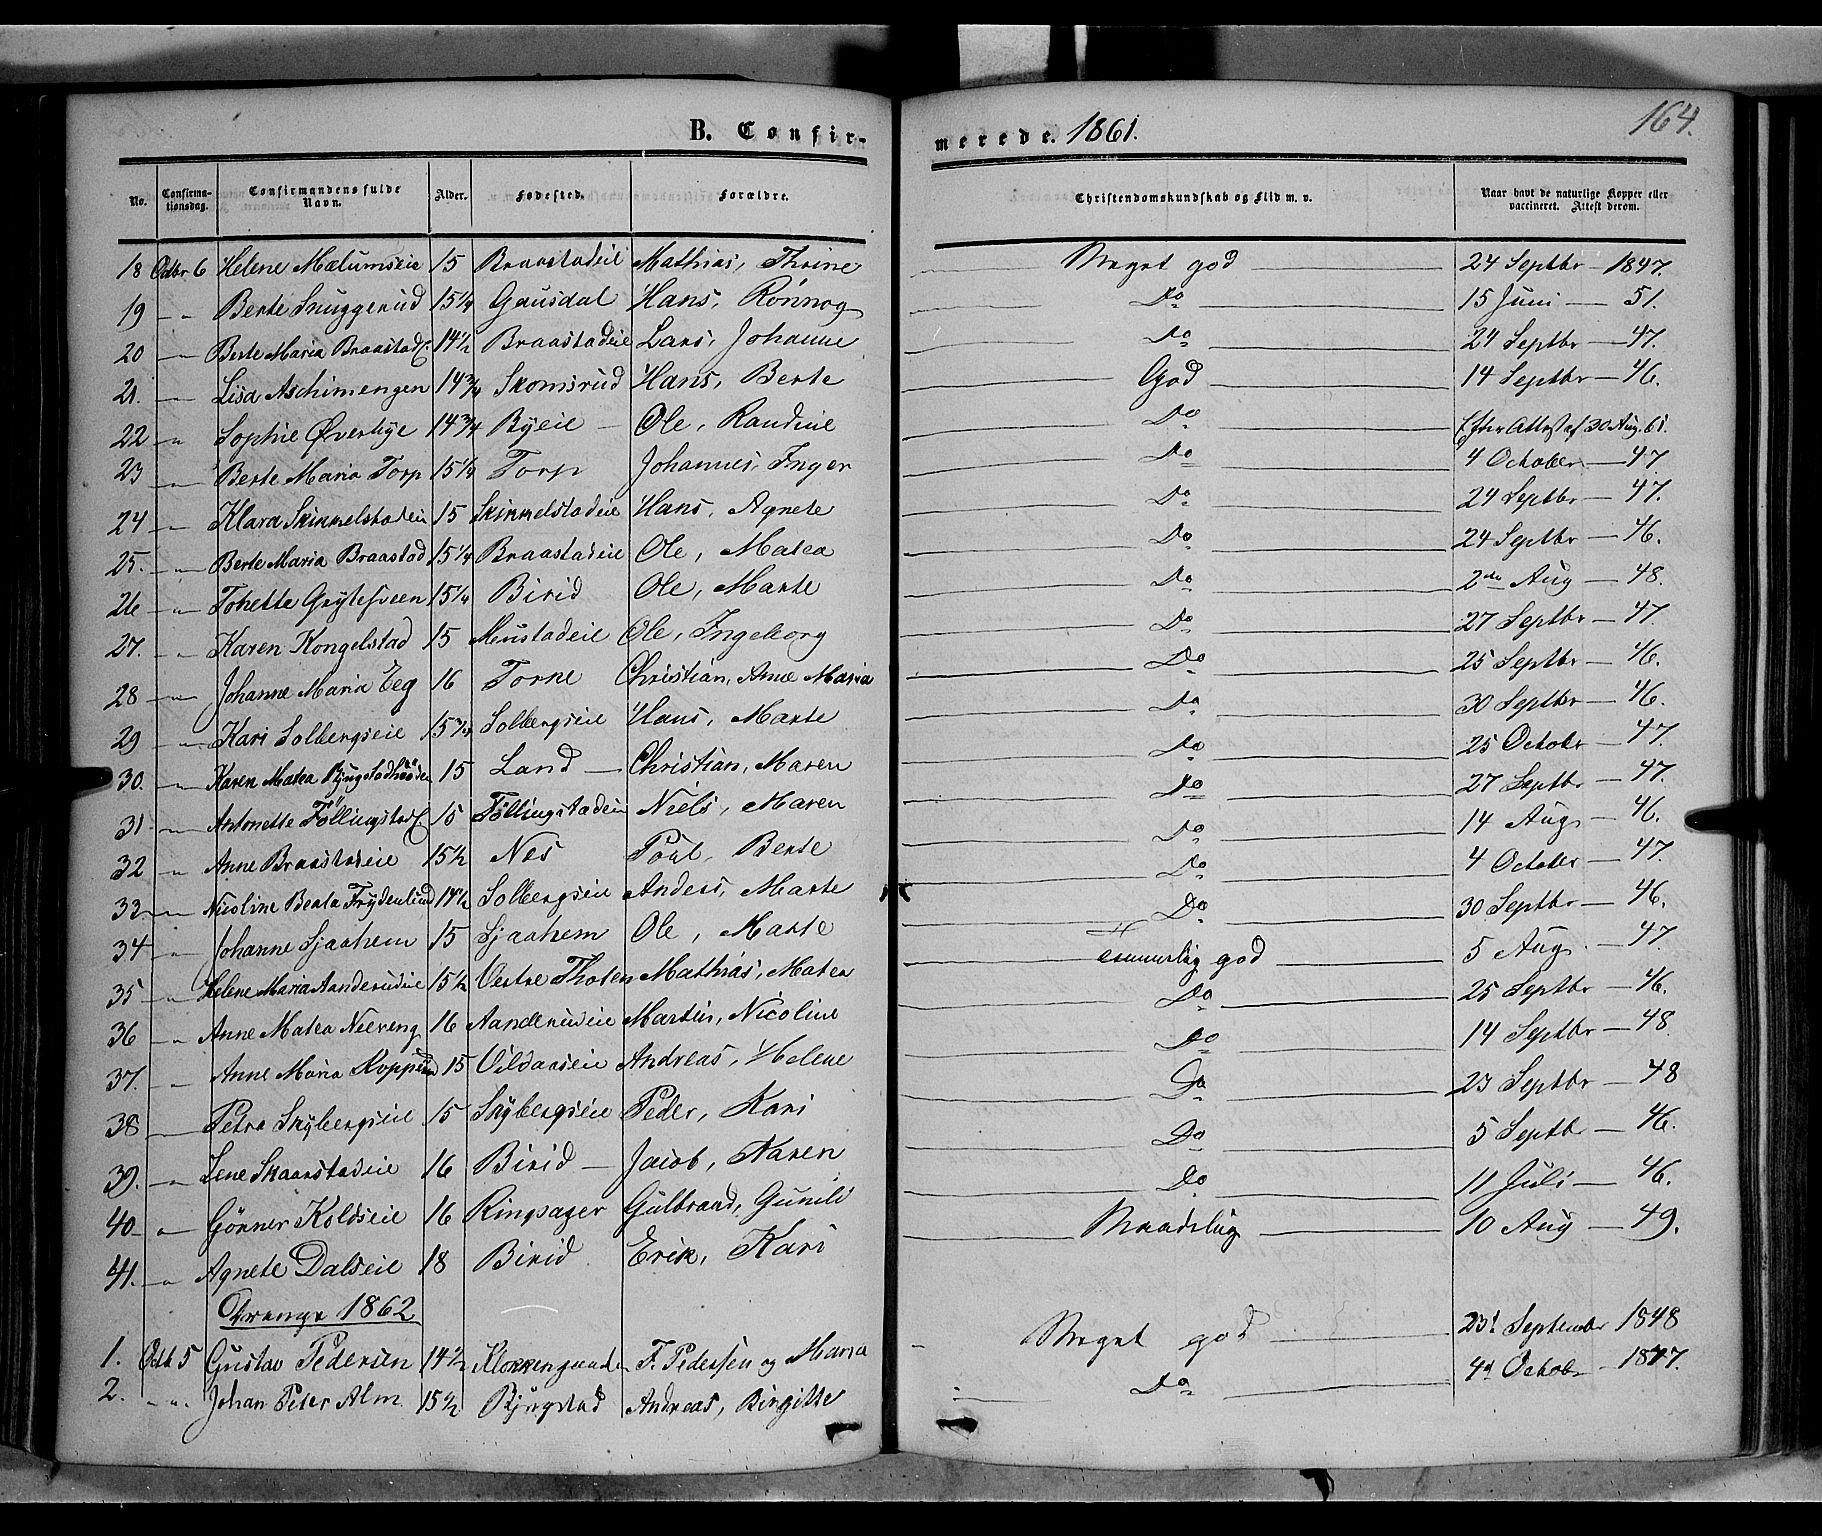 B. Confir-
merede. 1861.
164.
No.
Confirma-
tionsdag.
Confirmandens fulde
Navn.
Alder.
Fødested.
Forældre.
Christendomskundskab og Flid m. v.
Naar havt de naturlige Kopper eller
vaccineret. Attest derom.
18 Octbr 6 Helene Mælumseie 15 Braastadeie Mathias, Thrine Meget god 24 Septbr 1847.
19 " Berte Snuggerud 15 1/4 Gausdal Hans, Rönnog Do 15 Juni 51.
20 " Berte Maria Braastade. 14 1/2 Braastadeie Lars, Johanne Do 24 Septbr 47.
21. " Lisa Aschimengen 14 3/4 Skomsrud Hans, Berte God 14 Septbr 46.
22 " Sophie Øverbye 14 3/4 Byeie Ole, Randine Do Efter Attest af 30 Aug. 61.
23 " Berte Maria Torp 15 1/4 Torp Johannes, Inger Do 4 October 47
24 " Klara Skimmelstadeie 15 Skimmelstadeie Hans, Agnete Do 24 Septbr 47.
25. " Berte Maria Braastad 15 1/4 Braastadeie Ole, Matea Do 24 Septbr 46.
26 " Tohette Grytesveen 15 1/4 Birid Ole, Marte Do 2de Aug 48.
27. " Karen Kongelstad 15 Mustadeie Ole, Ingeborg Do 27 Septbr 47.
28 " Johanne Maria Eeg 16 Torke Christian, Anne Maria Do 25 Septbr 46.
29 " Kari Solbergseie 15 3/4 Solbergseie Hans, Marte Do 30 Septbr 46.
30. " Karen Matea 15 Land Christian, Maren Do 25 Octobr 47.
31 " Antonette Föllingstad 15 Föllingstadeie Niels, Maren Do 27 Septbr 47.
32 " Anne Braastadeie 15 1/2 Nes Poul, Berte Do 14 Aug 46.
33 " Nicoline Berta Frydenlund 14 1/2 Solbergseie Anders, Marte Do 4 October 47.
34 " Johanne Sjaahem 15 Sjaahem Ole, Marte Do 30 Septbr 46.
35 " Helene Maria Aanderudeie 15 1/2 Vestre Thoten Mathias, Matea Temmelig god 5 Aug. 47.
36 " Anne Matea Neereng 16 Aanderudeie Martin, Nicoline Do 25 Septbr 46.
37. " Anne Maria Kopperud 15 Vildaaseie Andreas, Helene Do 14 Septbr 48.
38 Petra Skybergseie 15 Skybergseie Peder, Kari Do 23 Septbr 48
39. " Lene Skaarstadeie 16 Birid Jacob, Karen Do 5 Septbr 46.
40 " Gönner Koldseie 16 Ringsager Gulbrand, Gunild Do 11 Juli 46.
41. " Agnete Dalseie 18 Birid Erik, Kari Maadelig 10 Aug 49.
Drenge 1862
1. Octb 5 Gustav Pedersen 14 1/2 Klokkergaarden F. Pedersen og Maria Meget god 23d September 1848
2. " Johan Peter Alm. 15 1/2 Bjugstad Andreas, Birgitte Do 4d Octobr 1847.